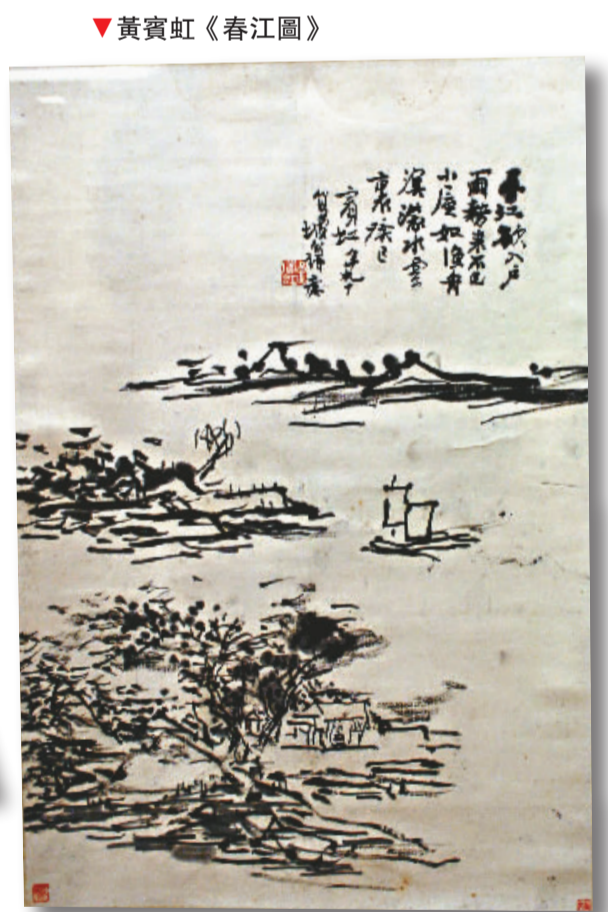 ▼黃賓虹《春江圖》
春江欲入戶
雨勢來不已
小屋如漁舟
濛濛水雲
裏 癸巳
賓虹年九十